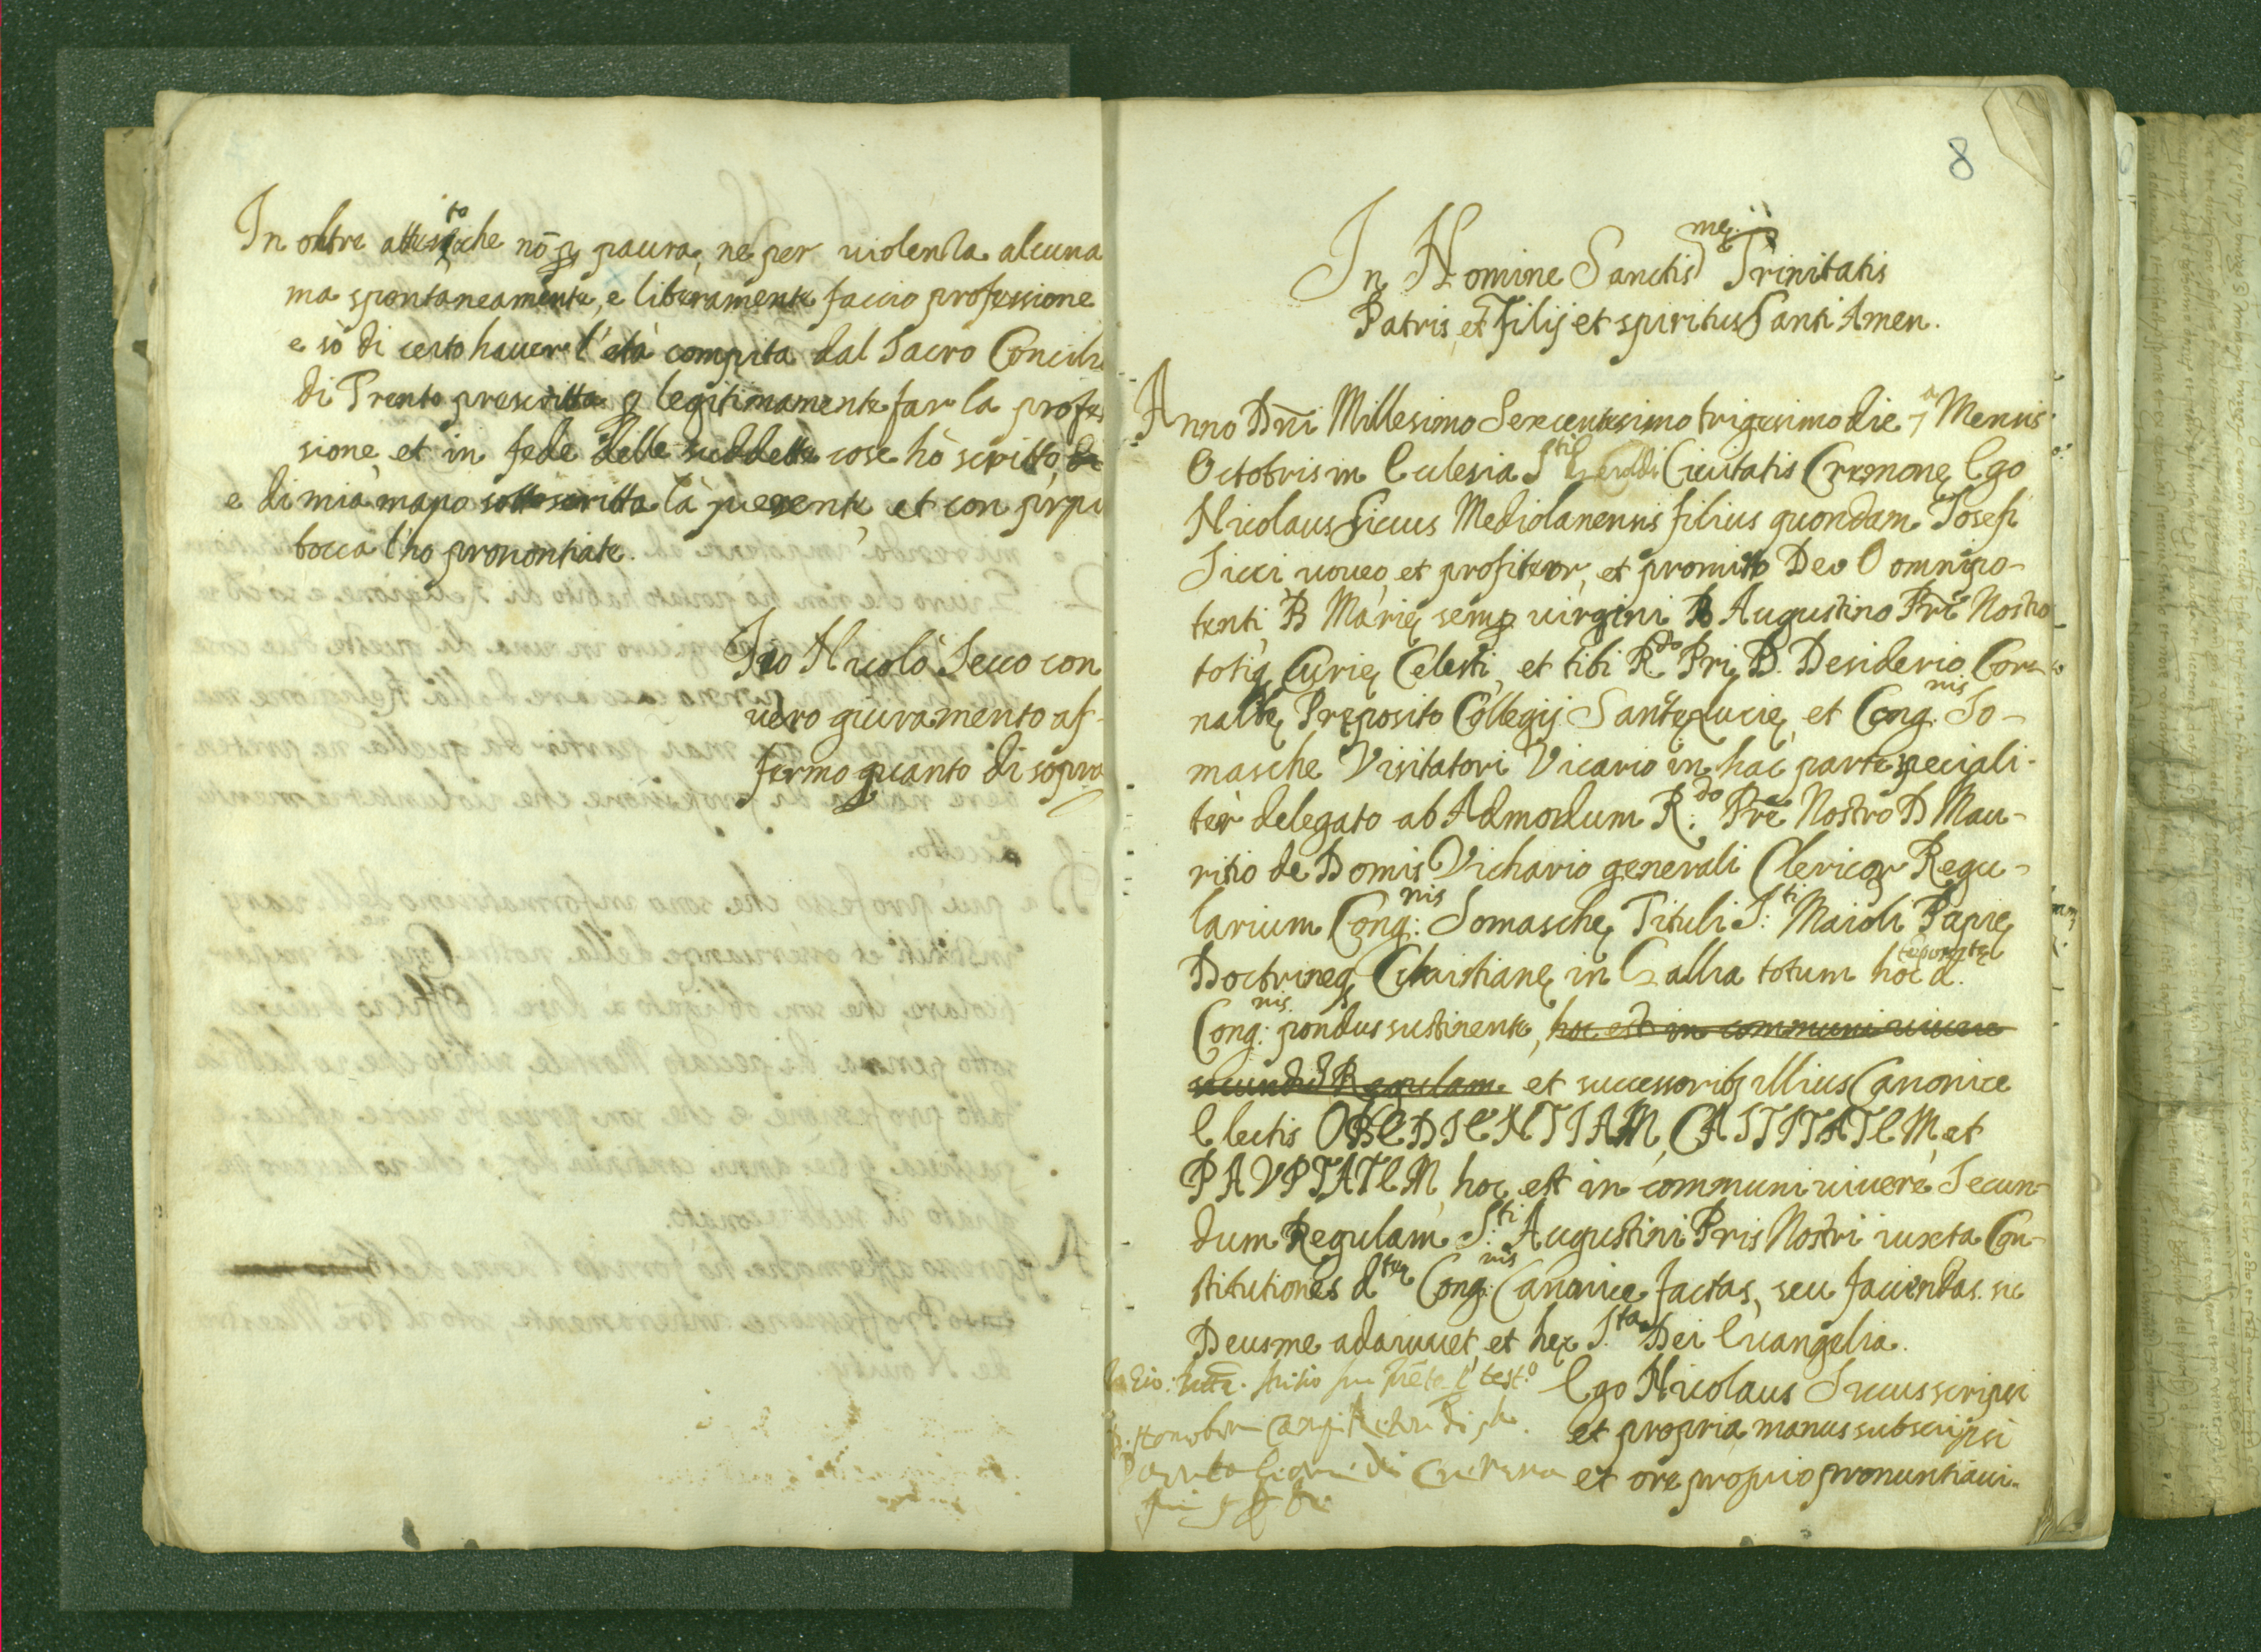 In oltre attesto che nō p paura, ne per uiolenza alcuna
ma spontaneamente, e liberamente faccio professione
e sò di certo hauer l'età compita dal Sacro Concili
di Trento prescritta p legitimamente far la profes
sione, et in fede delle suddette cose hò scritto,
e di mia mano sottoscritta la presente, et con prpi
bocca l'ho pronontiate.
Io Nicolò Secco con
uero giuramento af-
fermo quanto di sopra
8
In Nomine Sanctis.mę Trinitatis
Patris, et Filij et spiritus Santi Amen.
Anno Dn̄i Millesimo Sexcentesimo trigesimo die 7a Mensis
Octobris in Eclesia S.ti Geroldi Ciuitatis Cremonę Ego
Nicolaus Siccus Mediolanensis filius quondam Josefi
Sicci uoueo, et profiteor, et promitto Deo Oomnipo-
tenti, B Marię semp uirgini B Augustino Prē Nostro
totiq Curię Celesti, et tibi R.do Pri D. Desiderio Cor-
nalbę Pręposito Collegij Santę Lucię, et Cong.nis So-
masche Visitatori Vicario in hac parte speciali-
ter delegato ab Admodum R.do Prē Nostro D Mau-
ritio de Domis Vichario generali Clericor Regu-
larium Cong.nis Somaschę, Tituli S.ti Maioli Papię
Doctrineq Christianę in Gallia totum hoc d.
Cong.nis pondus sustinente, hoc est in communi uiuere
secundū Regulam et successoribq illius Canonice
Electis OBEDIENTIAM, CASTITATEM, et
PAVPTATEM, hoc est in communi uiuere Secun-
dum Regulam S.ti Augustini Pris Nostri iuxta Con-
stitutiones d.tę Cong.nis Canonice factas, seu faciendas. sic
Deus me adaiuuet, et hęc S.ta Dei Euangelia.
Ego Nicolaus Siccus scripsi
et propria manus subscripsi
et ore proprio pronuntiaui.